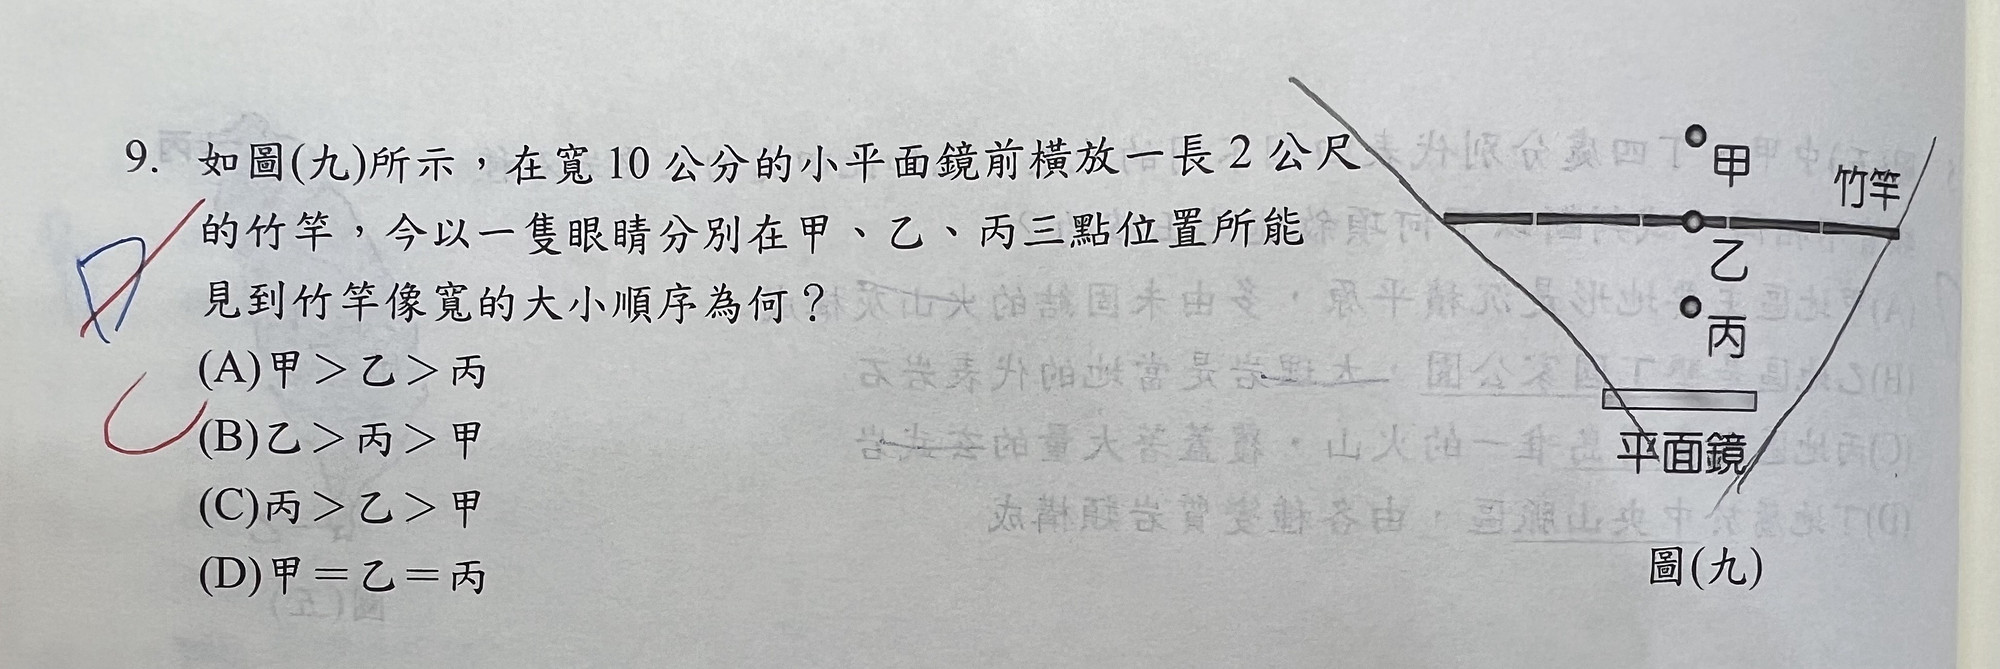 9. 如圖(九)所示，在寬 10 公分的小平面鏡前橫放一長 2 公尺
的竹竿，今以一隻眼睛分別在甲、乙、丙三點位置所能
見到竹竿像寬的大小順序為何？
(A)甲＞乙＞丙
(B)乙＞丙＞甲
(C)丙＞乙＞甲
(D)甲＝乙＝丙
D
C
甲
竹竿
乙
丙
平面鏡
圖(九)